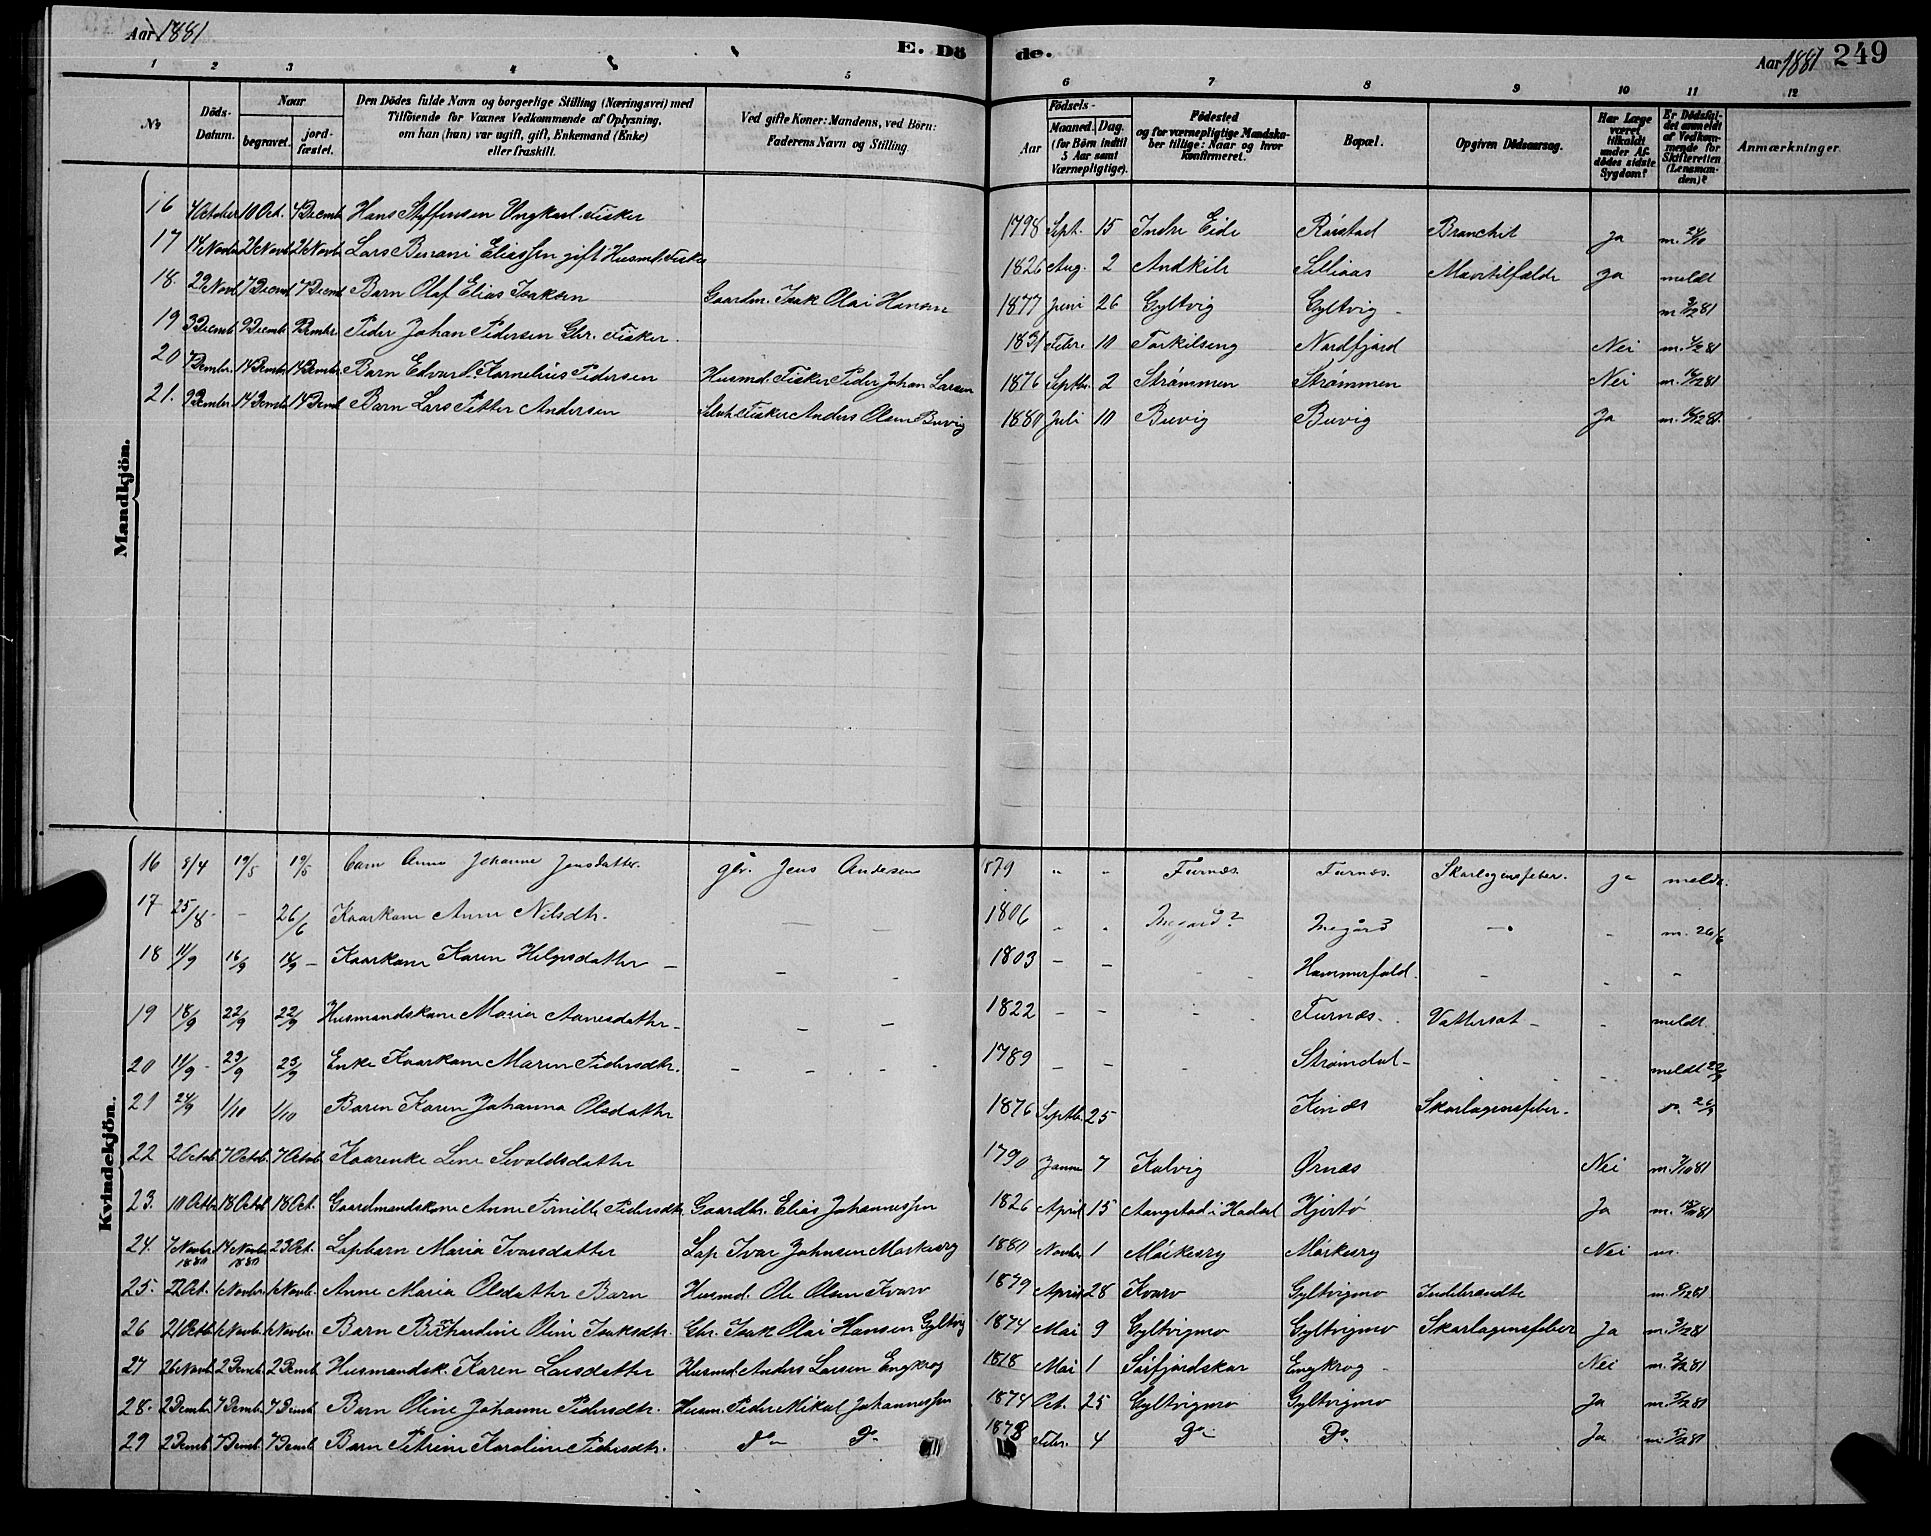 Aar 1881
E. Dö
de.
Aar 1881 249
1 2 3 4 5 6 7 8 9 10 11 12
№ Döds-Datum. Naar begravet. jord-fæstet. Den Dödes fulde Navn og borgerlige Stilling (Næringsvei) med Tilföiende for Voxnes Vedkommende af Oplysning, om han (hun) var ugift, gift, Enkemand (Enke) eller fraskilt. Ved gifte Koner: Mandens, ved Börn: Faderens Navn og Stilling Födsels- Aar Maaned. Dag. (for Börn indtil 5 Aar samt Værnepligtige). Födested og for værnepligtige Mandskaber tillige: Naar og hvor konfirmeret. Bopæl. Opgiven Dödsaarsag. Har Læge været tilkaldt under Afdödes sidste Sygdom? Er Dödsfaldet anmeldt af Vedkommende for Skifteretten (Lensmanden)? Anmærkninger.
Mandkjön.
16 4 October 10 Oct. 4 Decmb. Hans Steffensen Ungkarl. Fisker 1798 Sept. 15 Indre Eide Rörstad Bronchit Ja m. 24/10
17 14 Novbr 26 Novb 26 Novb. Lars Eliassen gift Husmd. Fisker 1826 Aug. 2 Andkil Silliaas Ja meldt
18. 29 Novb 7 Decmb 7 Decmb Barn Olaf Elias Isaksen Gaardm. Isak Olai Hansen 1877 Juni 26 Gyltvig Gyltvig - m. 3/12 81
19 3 Decmb 9 Decmb 9 Dcmbr Peder Johan Pedersen Gbr. Fisker. 1831 Febr. 10 Torkilseng Nordfjord Nei m.
20 7 Dcmbr. 14 Dcmbr 14 Dcmbr. Barn Edvard Kornelius Pedersen Husmd. Fisker Peder Johan Larsen 1876 Septbr. 2 Strömmen Strömmen Nei m. 14/12 81
21. 9 Dcmbr 14 Dcmb 14 Dcmb Barn Lars Petter Andersen Fisker Anders Olsen Buvig 1880 Juli 10 Buvig Buvig Ja m.
Kvindekjön.
16 8/4 19/5 19/5 barn Anne Johanne Jensdatter. gbr. Jens Andersen 1879 " " Furnæs. Furnæs. Skarlagensfeber. ja meldt.
17 25/8 - - 26/6 Kaarkone Anne Nilsdtr. - - 1806 " " Megård? Megård - - m. 26/6
18 11/9 16/9 16/9 - Kaarkone Karen Helgesdatter - - - 1803 - - - - Hammerfald. - - -
19 18/9 22/9 22/9 Husmandskone Maria Aanesdatter - - - 1822 - - - Furnæs. Vattersot - - meldt.
20 11/9 - 23/9 23/9 Enke Kaarkone Maren Pedersdtr. - - - - 1789 - - - - Strömdal - - meldt 22/9
21 24/9 1/10 1/10 Baren Karen Johanna Olsdatter 1876 Septbr. 25 Kinæs Skarlagensfeber. 26/9
22 2 Octob 7 Octob. 7 Octob Kaarenke Lene Sivaldsdatter 1790 Janur 7 Kalvig Ørnæs Nei m. 7/10 81
23. 10 Octbr 18 Octob 18 Oct. Gaardmandskone Anne Pernille Pedersdtr. Gaardbr. Elias Johannessen 1826 April 15 Aangstad i Hadsel Hjertö Ja m.
24. 7 Novbr 1880 14 Novbr 1880 23 Oct. Lapbarn Maria Ivarsdatter Lap Ivar Johnsen Mörkesry 1880 Novbr 1 Mörkesry Mörkesry Nei m.
25. 22 Oct. 6 Novbr. 6 Novb. Anne Maria Olsdatter Barn Husmd. Ole Olsen Kvarv 1879 April 28 Kvarv Gyltvigmo m.
26 21 Octb. 6 Novb. 6 Novbr. Barn Oline Isaksdtr. Gbr. Isak Olai Hansen Gyltvig 1874 Mai 9 Gyltvigmo Gyltvigmo Skarlagensfeber Ja m. 3/12 81
27 26 Novb 2 Dcmb 2 Dcmb Husmandsk. Karen Larsdatter Husmd. Anders Larsen Engkrog 1818 Mai 1 Sörfjordskar Engkrog - Nei m. 2/12 81
28. 2 Dcmb. 7 Dcmb. 7 Dcmb. Barn Oline Johanne Pedersdtr. Husm. Peder Nikol Johannessen 1874 Oct. 25 Gyltvigmo Gyltvigmo Ja m. 5/12 81
29 2 Dcmb 7 Dcmb. 7 Dcmb Barn Petrine Karoline Pedersdtr. do do 1878 Febr. 4 do Do Ja m. 5/12 81